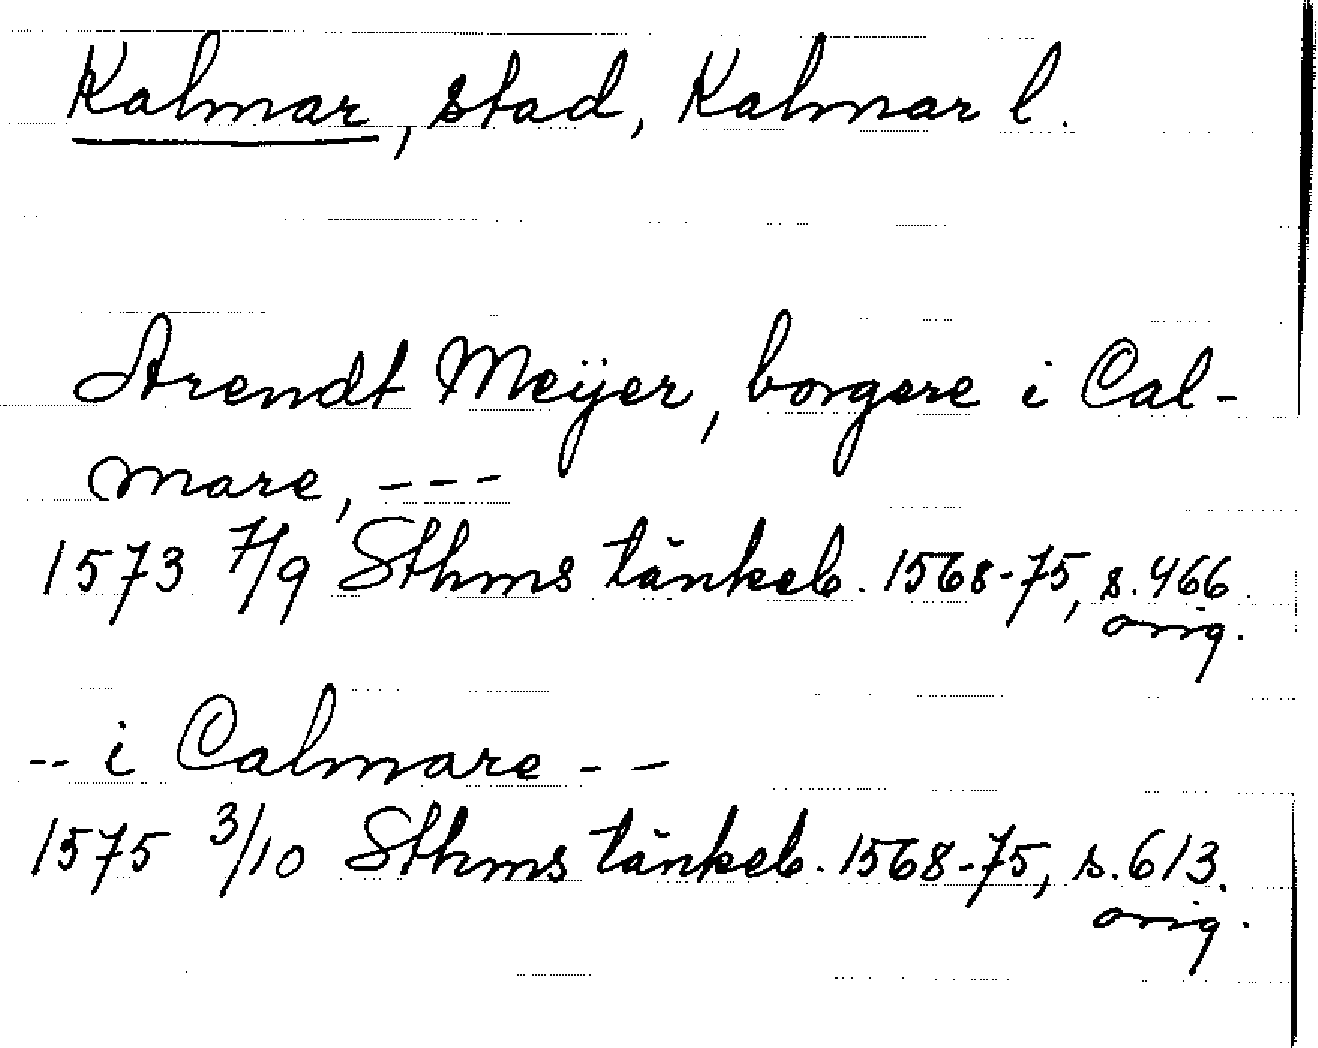 Kalmar, stad, Kalmar l.
Arendt Meÿer, borgere i Cal-
mare, ---
1573 7/9 Sthms tänkeb. 1568-75, s. 466.
orig.
-- i Calmare --
1575 3/10 Sthms tänkeb. 1568-75, s. 613.
orig.